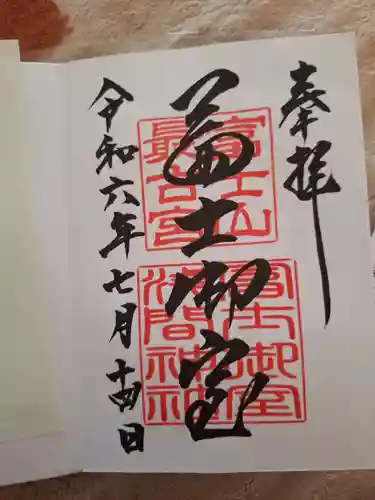 奉拝
富士御室
富士山
最古宮
冨士御室
浅間神社
令和六年七月十四日